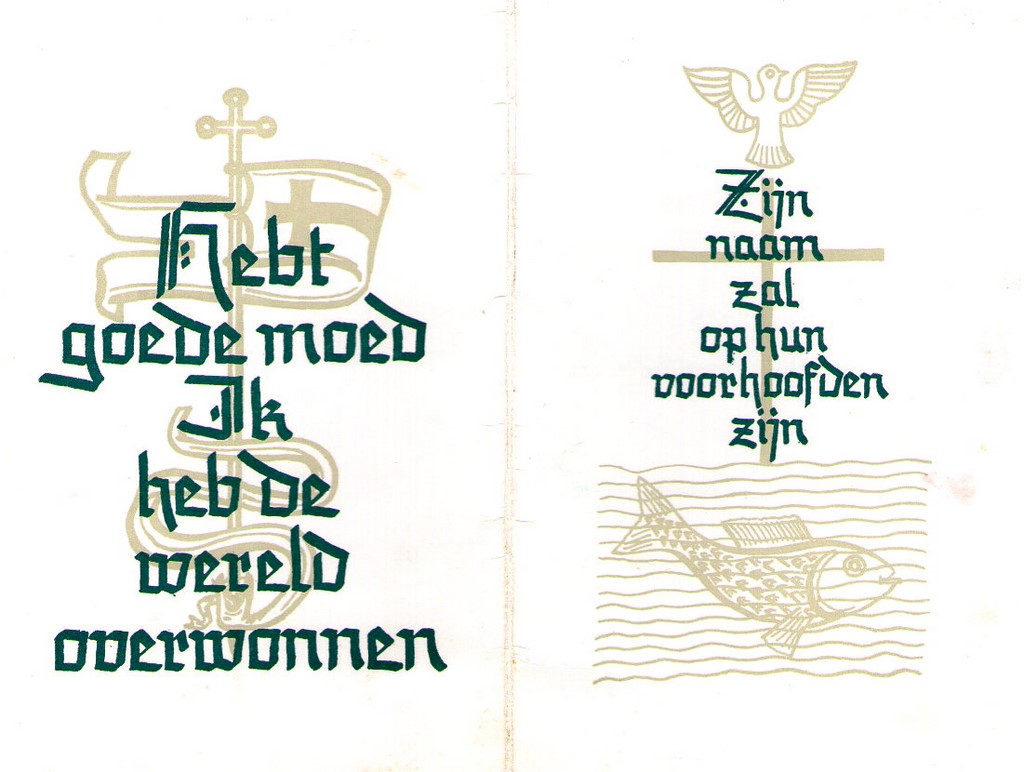 Hebt
goede moed
Ik
heb de
wereld
overwonnen
Zijn
naam
zal
op hun
voorhoofden
zijn